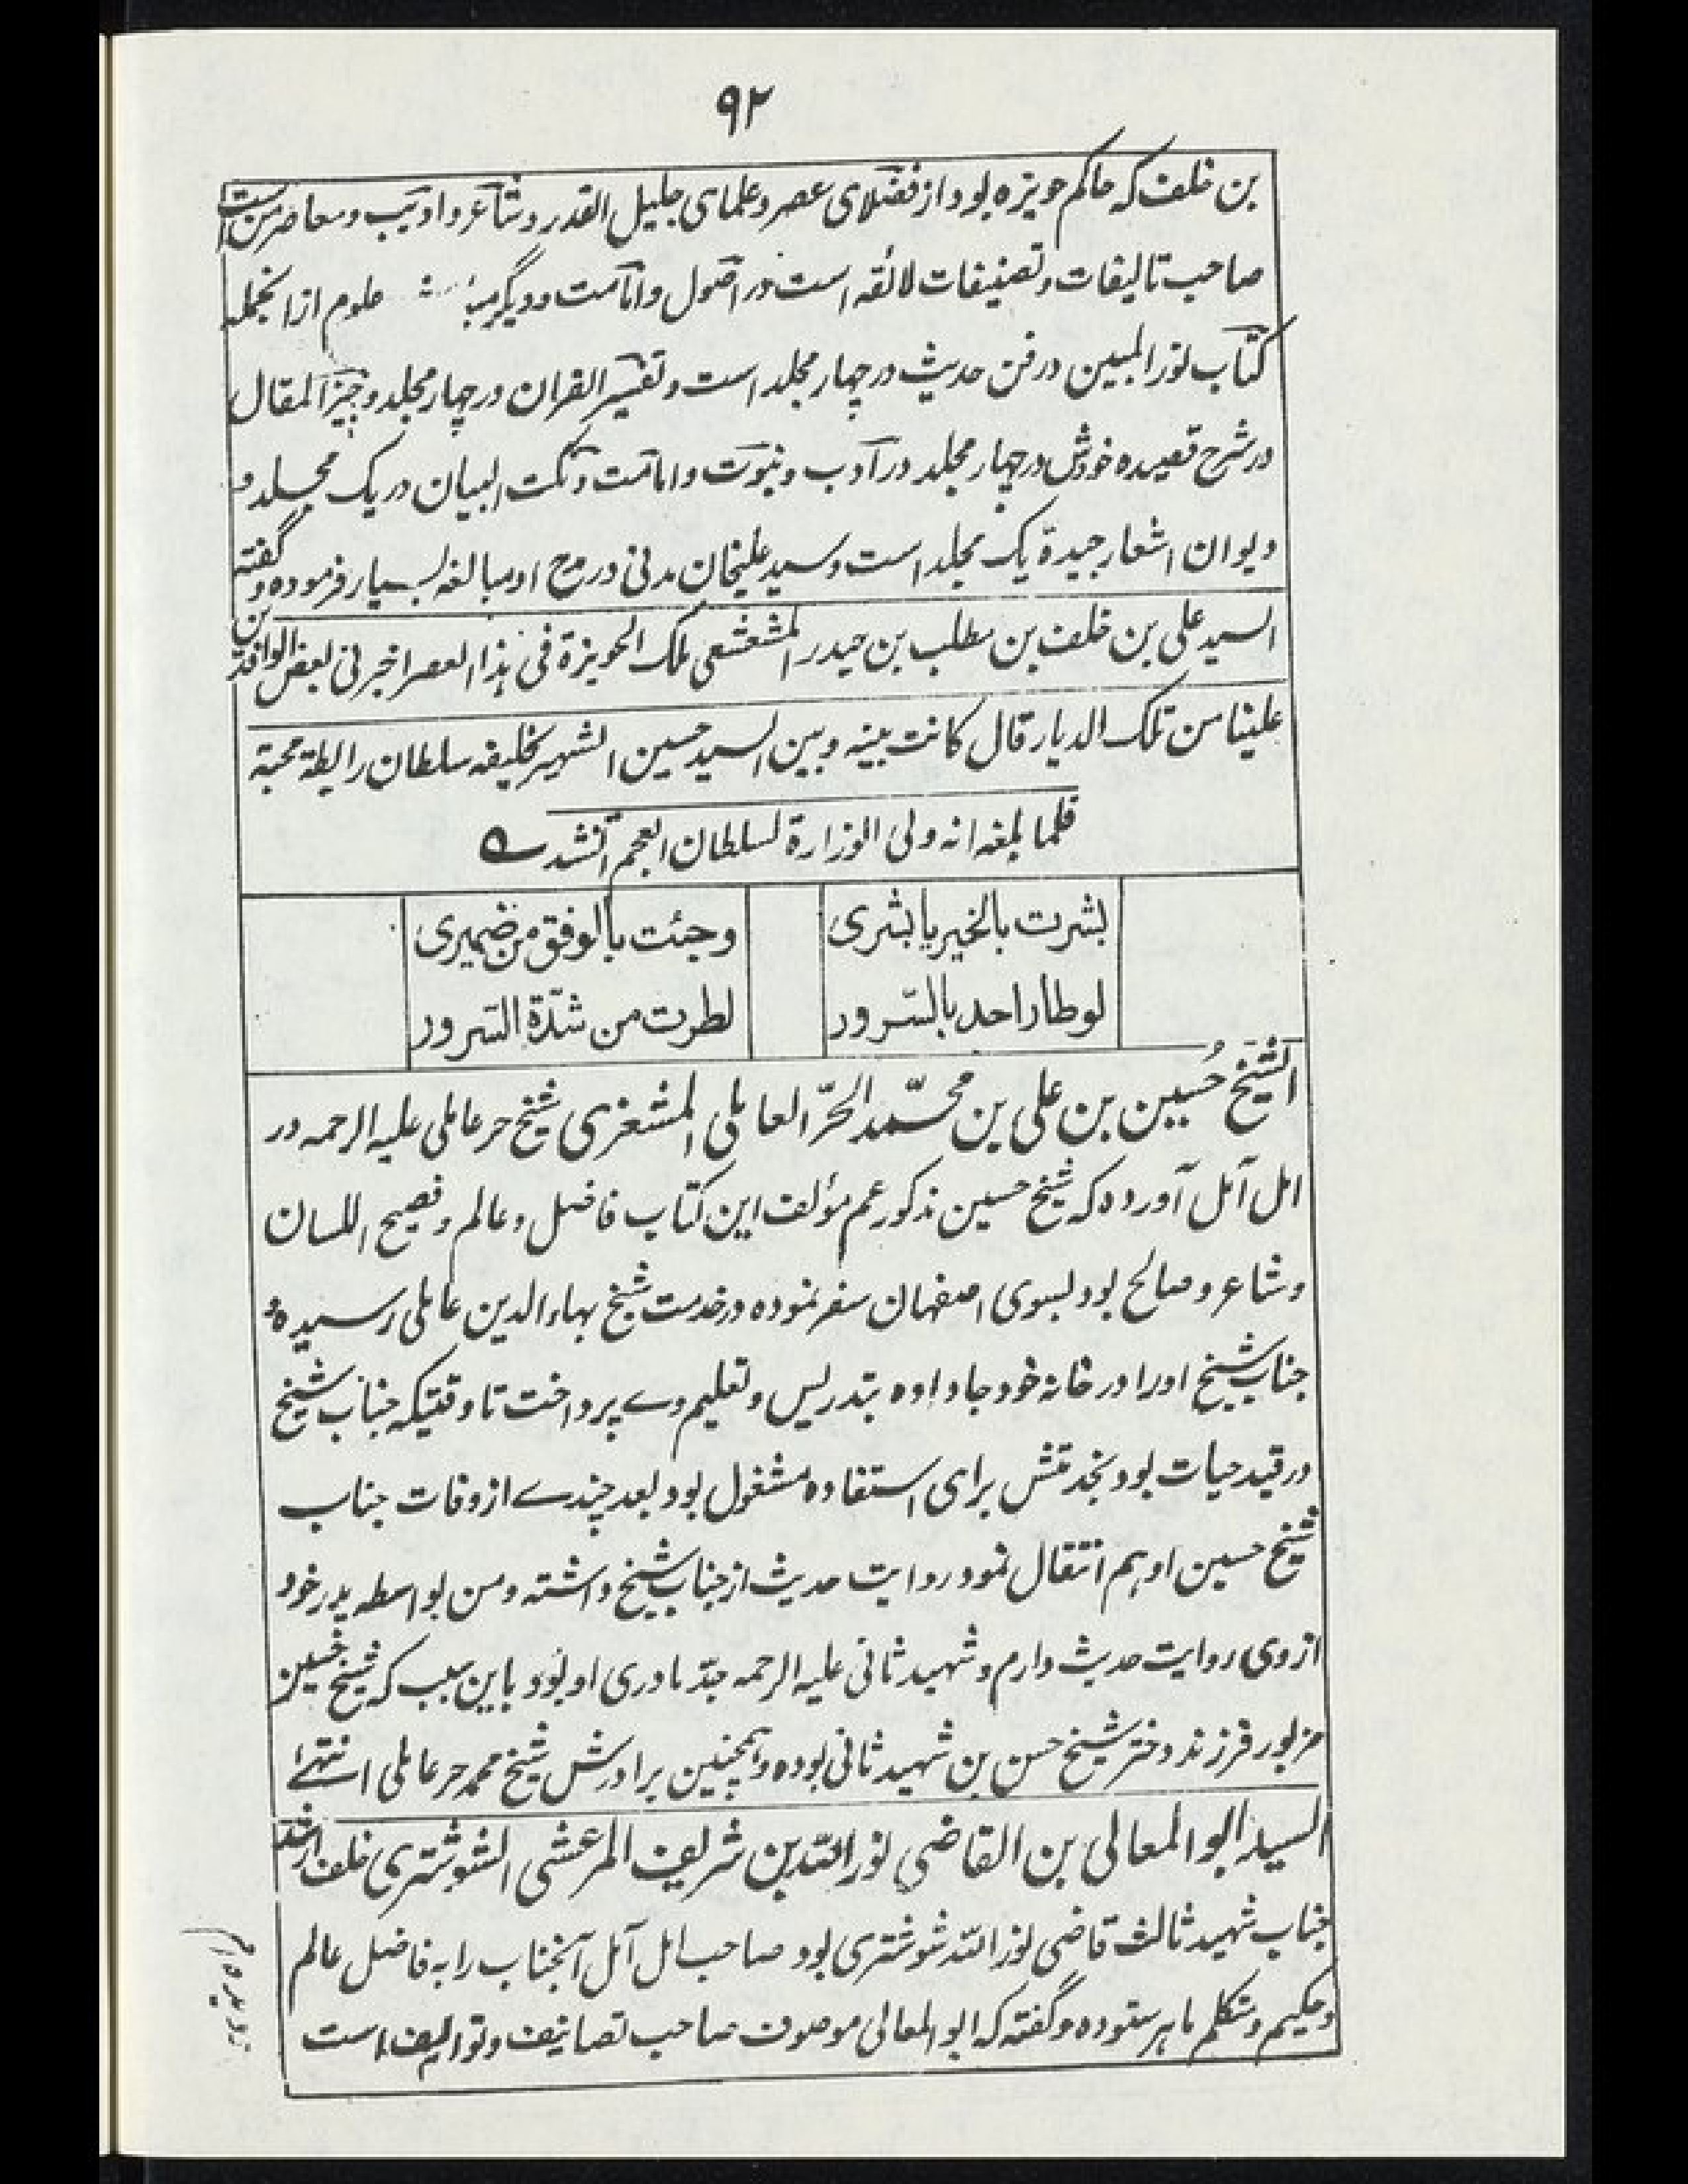 ۹۲
بن خلف که حاکم حویزه بود از فضلای عصر و علمای جلیل القدر و شاعر و ادیب و معاصر من است
صاحب تالیفات و تصنیفات لائقه است در اصول و امامت و دیگر علوم از انجمله
کتاب نور المبین در فن حدیث در چهار مجلد است و تفسیر القران در چهار مجلد و خیر المقال
در شرح قصیده خودش در چهار مجلد در آدب و نبوت و امامت و نکت البیان در یک مجلد و
دیوان اشعار جیدة یک مجلد است و سید علیخان مدنی در مدح او مبالغه بسیار فرموده و گفته
السید علی بن خلف بن مطلب بن حیدر المشعشعی ملک الحویزة فی هذا العصر اخبرنی بعض الوافدین
علینا من تلک الدیار قال کانت بینه و بین السید حسین الشهیر بخلیفه سلطان رابطة محبة
فلما بلغه انه ولی الوزارة لسلطان العجم انشد
بشرت بالخیر یا بشری وجئت بالوفق من ضمیری
لو طار احد بالسرور لطرت من شدّة السرور
الشیخ حُسین بن علی بن محمّد الحرّ العاملی المشغری شیخ حر عاملی علیه الرحمه در
امل آمل آورده که شیخ حسین مذکور عم مؤلف این کتاب فاضل و عالم و فصیح اللسان
و شاعر و صالح بود بسوی اصفهان سفر نموده در خدمت شیخ بهاء الدین عاملی رسیده
جناب شیخ او را در خانه خود جا داده بتدریس و تعلیم وے پرداخت تا وقتیکه جناب شیخ
در قید حیات بود بخدمتش برای استفاده مشغول بود بعد چندے از وفات جناب
شیخ حسین او هم انتقال نمود روایت حدیث از جناب شیخ داشته و من بواسطه پدر خود
از وی روایت حدیث دارم و شهید ثانی علیه الرحمه جدّ مادری او بود باین سبب که شیخ حسین
مزبور فرزند دختر شیخ حسن بن شهید ثانی بوده و همچنین برادرش شیخ محمد حر عاملی انتهے
السید ابو المعالی بن القاضی نور الله بن شریف المرعشی الشوشتری خلف ارشد
جناب شهید ثالث قاضی نور الله شوشتری بود صاحب امل آمل آنجناب را به فاضل عالم
و حکیم و متکلم ماهر ستوده و گفته که ابو المعالی موصوف صاحب تصانیف و توالیف است